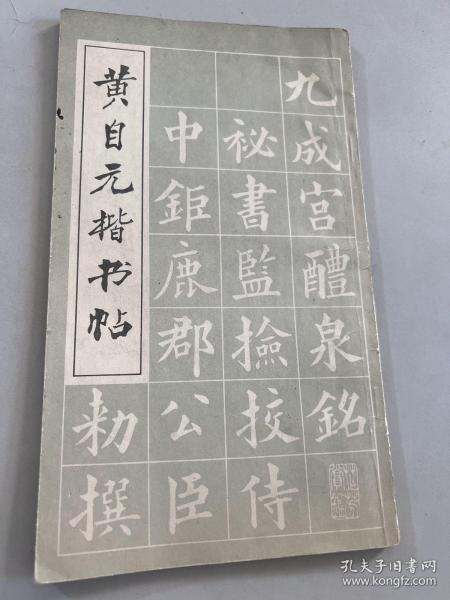 黄自元楷书帖
九成宫醴泉銘
祕書監撿挍侍
中鉅鹿郡公臣
勑撰
孔夫子旧书网
www.kongfz.com